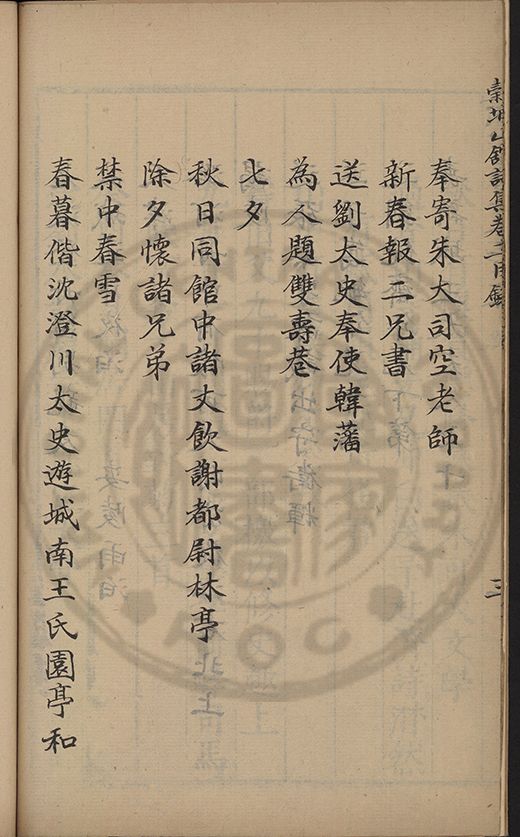 奉寄朱大司空老師
新春報二兄書
送劉太史奉使韓藩
為人題雙壽巷
七夕
秋日同館中諸丈飲謝都尉林亭
除夕懷諸兄弟
禁中春雪
春暮偕沈澄川太史遊城南王氏園亭和
山館詩集卷二目錄
三